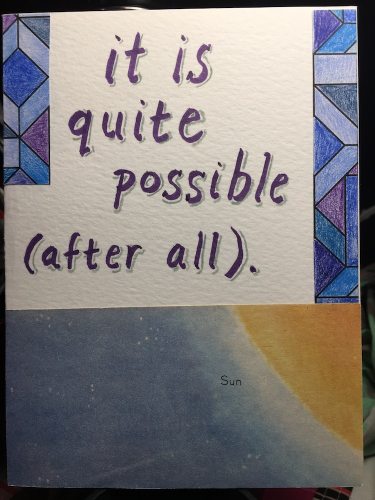 it is
quite
possible
(after all).
Sun